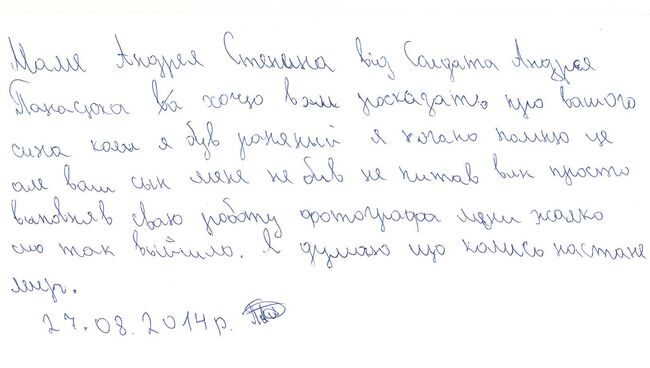 Маме Андрея Стенина від Солдата Андрея
Панасюка я хочю вам росказать про вашого
сина коли я був раненый я погано помню це
але ваш сын мене не бив не питав він просто
выповняв свою роботу фотографа мени жалко
що так выйшло. Я думаю що колись настане
мир.
27.08.2014р.